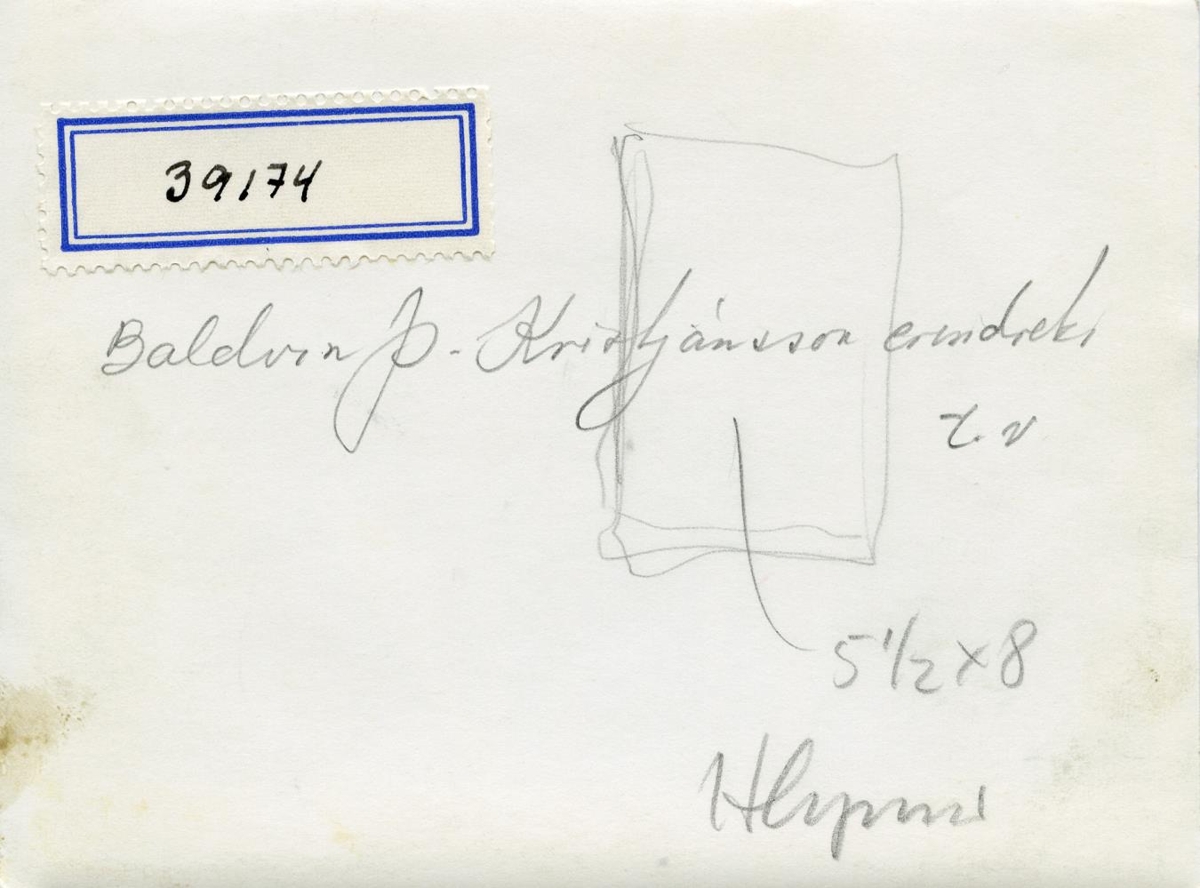 39174
Baldvin Þ. Kristjánsson erindreki
t.v
5 1/2 x 8
Hlynur